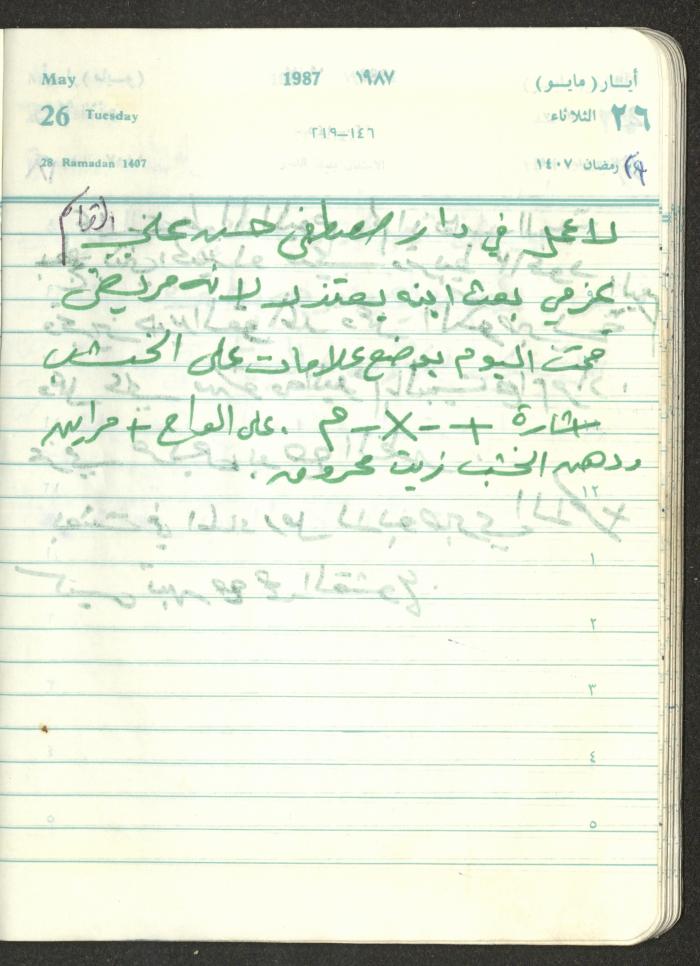 May 1987 ١٩٨٧ أيـــار (مايـــو)
26 Tuesday ١٤٦–٢١٩ الثلاثاء ٢٦
28 Ramadan 1407 رمضان ١٤٠٧
لا عمل في دار مصطفى حسن علي
عزمي بعث ابنه يعتذر لانه مريض
قمت اليوم بوضع علامات على الخشب
اشارة + - X - م . على الواح + مراين
ودهن الخشب زيت محروق .
١٢
١
٢
٣
٤
٥